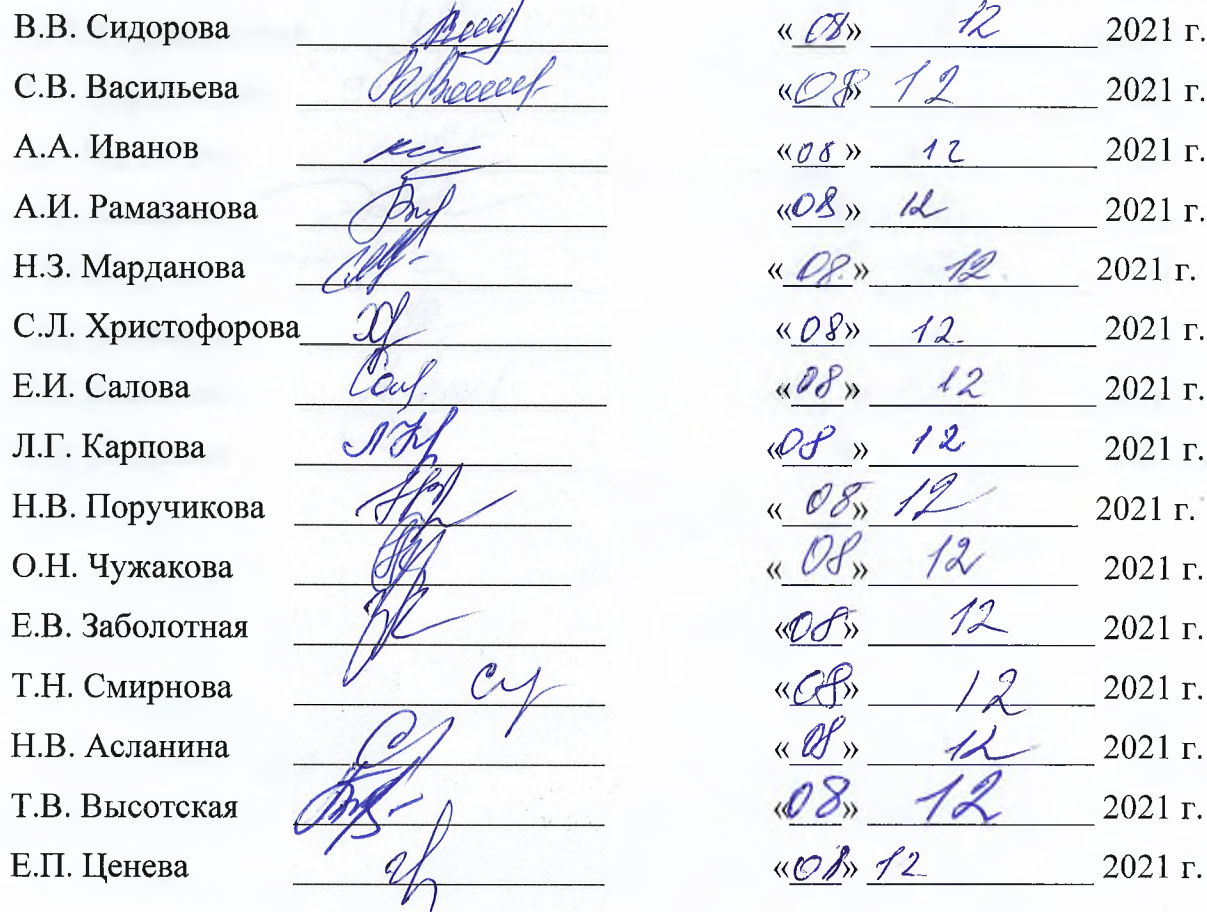 В.В. Сидорова «08» 12 2021 г.
С.В. Васильева «08» 12 2021 г.
А.А. Иванов «08» 12 2021 г.
А.И. Рамазанова «08» 12 2021 г.
Н.З. Марданова «08» 12. 2021 г.
С.Л. Христофорова «08» 12. 2021 г.
Е.И. Салова «08» 12 2021 г.
Л.Г. Карпова «08» 12 2021 г.
Н.В. Поручикова «08» 12 2021 г.
О.Н. Чужакова «08» 12 2021 г.
Е.В. Заболотная «08» 12 2021 г.
Т.Н. Смирнова «08» 12 2021 г.
Н.В. Асланина «08» 12 2021 г.
Т.В. Высотская «08» 12 2021 г.
Е.П. Ценева «08» 12 2021 г.